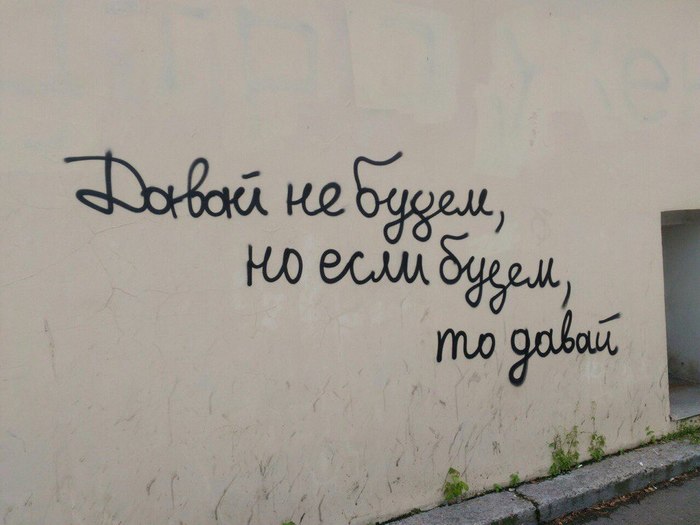 Давай не будем,
но если будем,
то давай